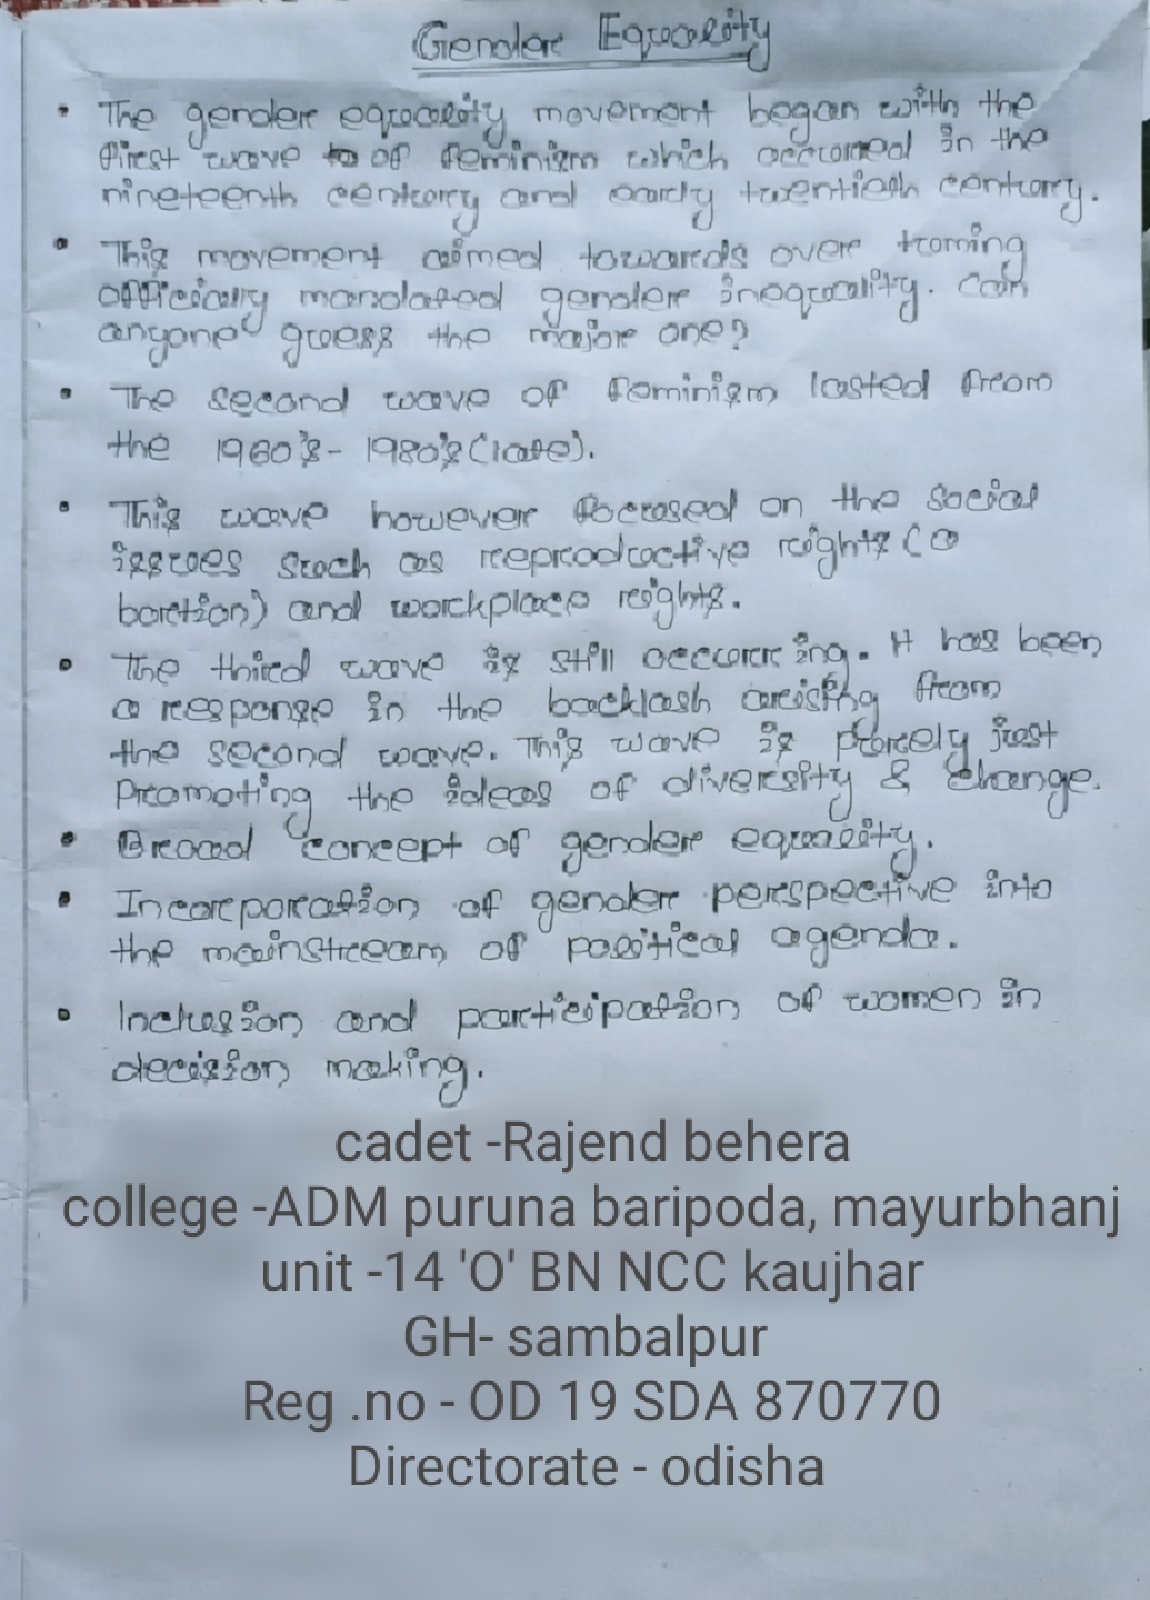 Gender Equality
• The gender equality movement began with the
first wave to of feminism which occured in the
nineteenth century and early twentieth century.
• This movement aimed towards over troming
officially mandated gender inequality. Can
anyone guess the major one?
• The second wave of feminism lasted from
the 1960's- 1980's (late).
• This wave however focused on the social
issues such as reproductive rights (a
bortion) and workplace rights.
• The third wave is still occurring. It has been
a response in the backlash arising from
the second wave. This wave is purely just
Promoting the ideas of diversity & change.
• Broad concept of gender equality.
• Incorporation of gender perspective into
the mainstream of political agenda.
• Inclusion and participation of women in
decision making.
cadet -Rajend behera
college -ADM puruna baripoda, mayurbhanj
unit -14 'O' BN NCC kaujhar
GH- sambalpur
Reg .no - OD 19 SDA 870770
Directorate - odisha